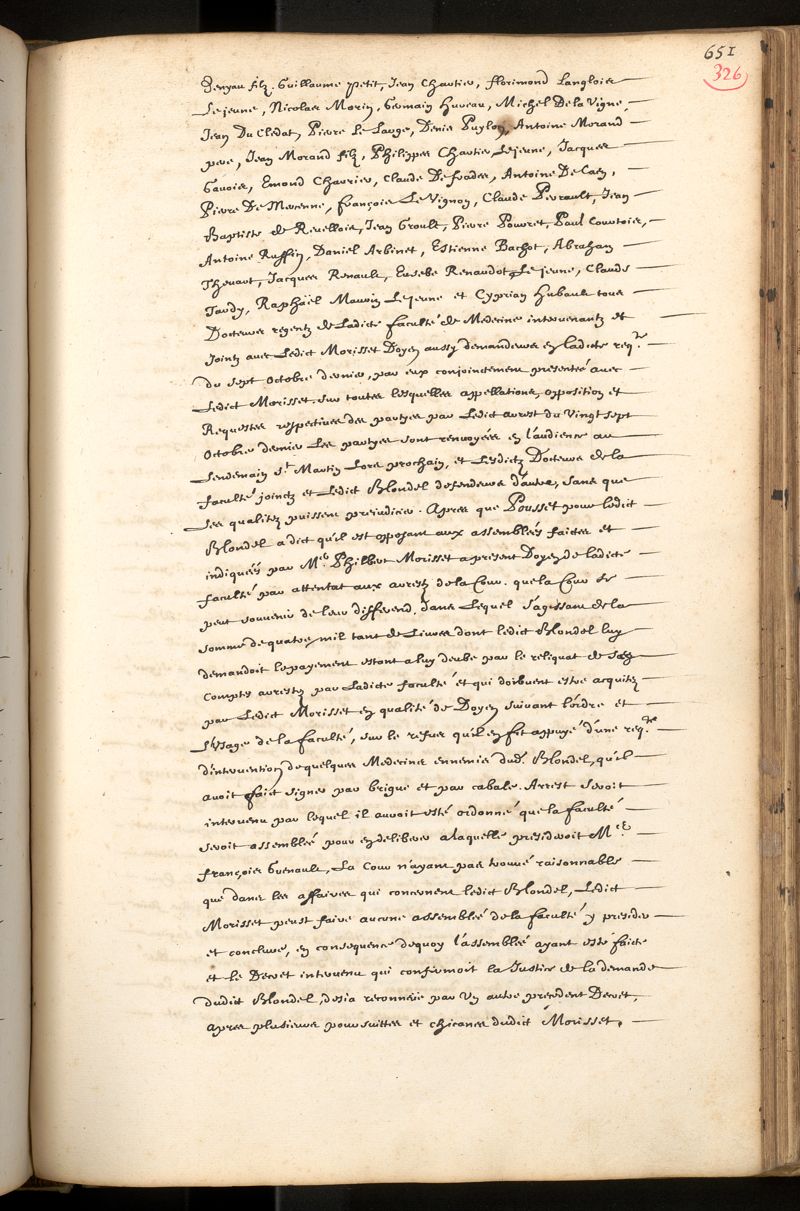 651
326
Denyau filz, Guillaume Petit, Jean Chartier, florimond Langlois
Lejeune, Nicolas Morin, Germain Hureau, Michel De la Vigne,
Jean Du Cledat, Pierre Le Large, Denis Puylon, Antoine Morand
pere, Jean Morand filz, Philippes Chartier Lejeune, Jacques
Gavois, Emond Charrier, Claude De frades, Antoine De Caen,
Pierre De Mercenne, françois Le Vignon, Claude Perrault, Jean
Baptiste de Revellois, Jean Groult, Pierre Pourret, Paul Courtois,
Antoine Ruffin, Daniel Arbinet, Estienne Bachot, Abraham
Thevart, Jacques Renault, Eusebe Renaudot Lejeune, Claude
Tardy, Raphaël Mauvin Lejeune et Cyprian Hubault tous
Docteurs regentz de Ladicte faculté de Medecine intervenantz et
joinctz avec Ledict Morisset Doyen aussy demandeurs en ladicte reqte
du sept Octobre dernier, par eux conjoinctement presenté avec
Ledict Morisset, sur toutes lesquelles appellations, opposition et
Requestes respectives des partyes par Ledict arrest du Vingt sept
Octobre dernier Les partyes sont renvoyées en l'audience au
Lendemain St Martin Lors prochain, et Lesdictz Docteurs de la
faculté joinctz et Ledict Blondel defendeurs d'autre, sans que
Les qualitez puissent prejudicier. Apres que Pousset pour ledict
Blondel a dict qu'il est opposant aux assemblées faictes et
indiquées par Me Philbert Morisset apresent Doyen de ladicte
faculté par attentat aux arrestz de la Cour. que la Cour se
peut souvenir de leur differend, dans Lequel s'agissant de la
somme de quatre mil tant de Livres dont ledict Blondel luy
demandoit le payement estant a luy deube par le reliquat de ses
Comptes arrestez par Ladicte faculté et qui doibvent estre acquitez
par Ledict Morisset en qualité de Doyen suivant l'ordre et
L'Usage de la faculté, sur le refus qu'il en fit appuyé d'une reqte
d'intervention de quelques Medecins ennemis dud. Blondel, qu'il
avoit faict signer par brigue et par cabale. Arrest seroit
intervenu par lequel il auroit esté ordonné que la faculté
seroit assemblée pour en deliberer a laquelle presideroit Me
françois Guenault, La Cour n'ayant pas trouvé raisonnable
que dans les affaires qui concernent ledict Blondel, Ledict
Morisset peust faire aucune assemblée de la faculté y presider
et conclure, en consequence dequoy l'assemblée ayant esté faicte
et le Decret intervenu qui confirmoit la Justice de la demande
dudict Blondel, desia reconneüe par Un autre precedent Decret,
apres plusieurs poursuittes et chicanes dudict Morisset,